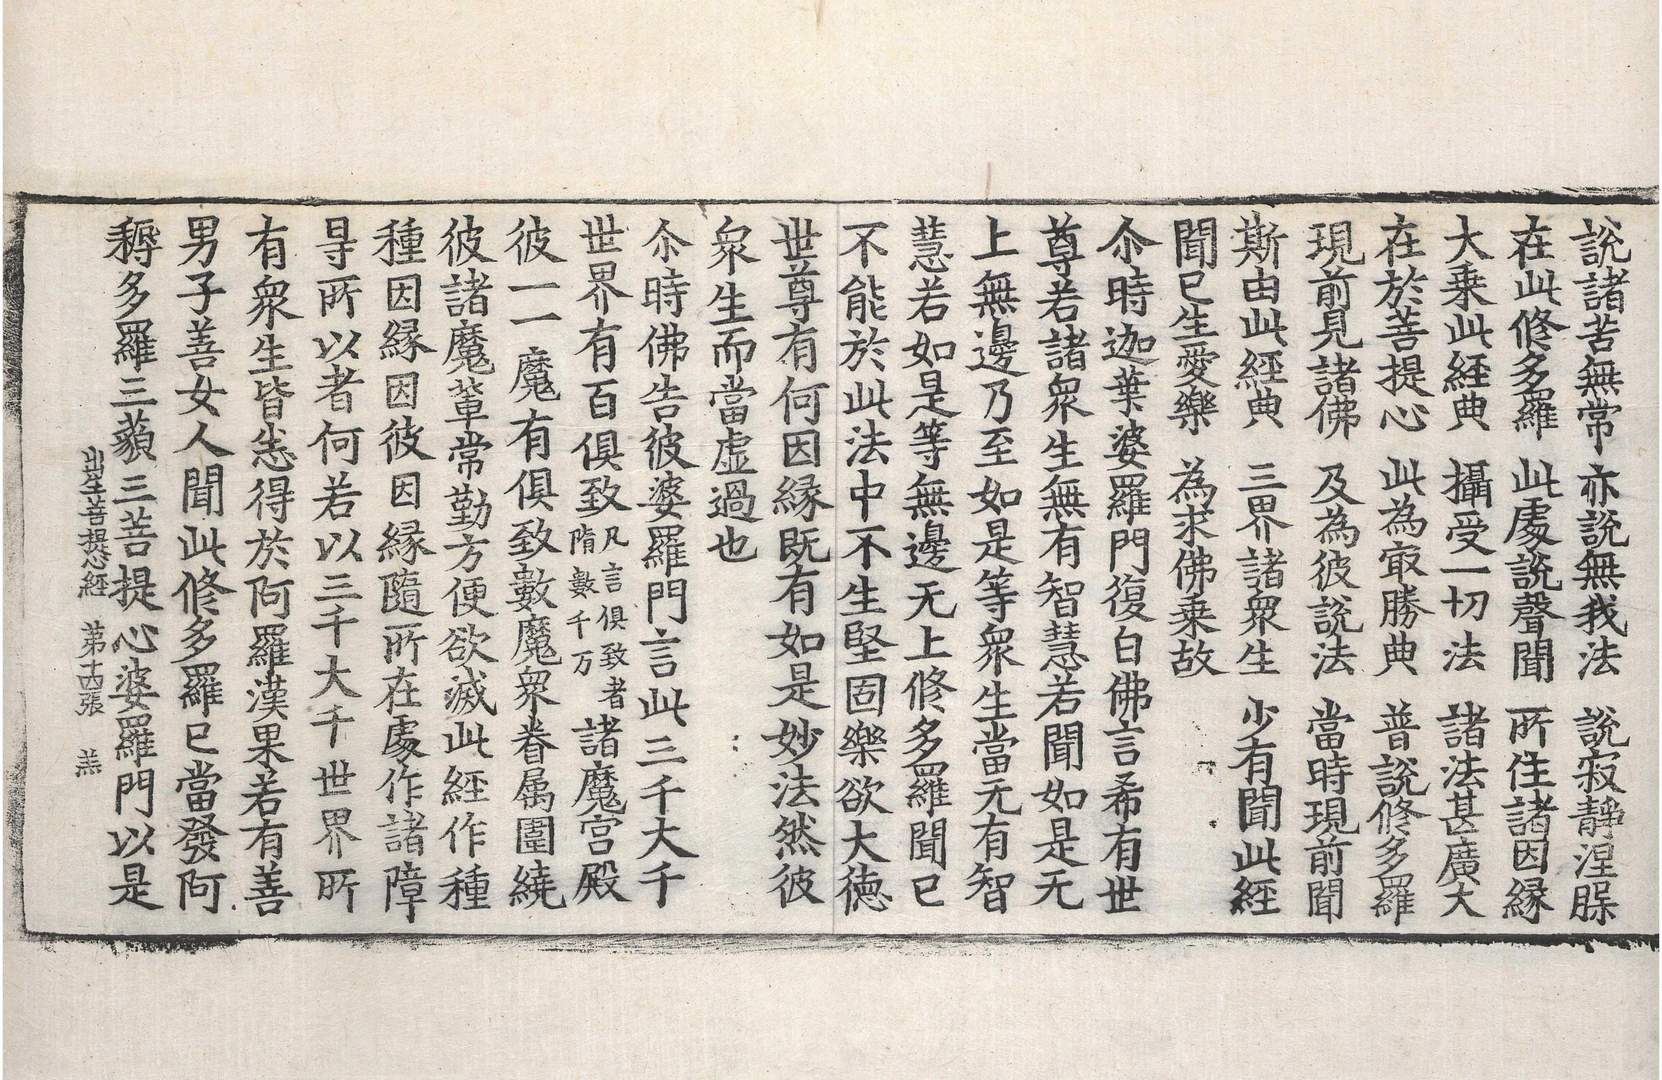 說諸苦無常　亦說無我法　說寂靜涅槃
在此修多羅　此處說聲聞　所住諸因緣
大乘此經典　攝受一切法　諸法甚廣大
在於菩提心　此為冣勝典　普說修多羅
現前見諸佛　及為彼說法　當時現前聞
斯由此經典　三界諸衆生　少有聞此經
聞已生愛樂　為求佛乘故
尒時迦葉婆羅門復白佛言希有世
尊若諸衆生無有智慧若聞如是无
上無邊乃至如是等衆生當无有智
慧若如是等無邊无上修多羅聞已
不能於此法中不生堅固樂欲大德
世尊有何因緣既有如是妙法然彼
衆生而當虛過也
尒時佛告彼婆羅門言此三千大千
世界有百俱致凡言俱致者隋數千万諸魔宮殿
彼一一魔有俱致數魔衆眷属圍繞
彼諸魔輩常勤方便欲滅此經作種
種因緣因彼因緣隨所在處作諸障
㝵所以者何若以三千大千世界所
有衆生皆悉得於阿羅漢果若有善
男子善女人聞此修多羅已當發阿
耨多羅三藐三菩提心婆羅門以是
出生菩提心經　第十四張　羔